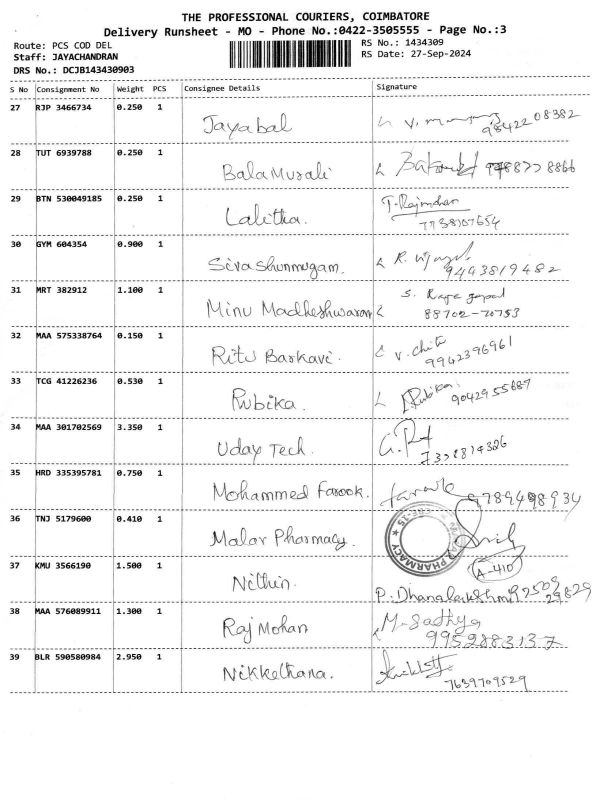 THE PROFESSIONAL COURIERS, COIMBATORE
Delivery Runsheet - MO - Phone No.:0422-3505555 - Page No.:3
Route: PCS COD DEL RS No.: 1434309
Staff: JAYACHANDRAN RS Date: 27-Sep-2024
DRS No.: DCJB143430903
S No Consignment No Weight PCS Consignee Details Signature
27 RJP 3466734 0.250 1 Jayabal
9842208382
28 TUT 6939788 0.250 1 Bala Murali
29 BTN 530049185 0.250 1 Lalitha.
30 GYM 604354 0.900 1 Sivashunmugam.
9443819482
31 MRT 382912 1.100 1 Minu Madheshwaran
88702-70753
32 MAA 575338764 0.150 1 Ritu Barkavi.
9942396961
33 TCG 41226236 0.530 1 Rubika. Rubika
9042955687
34 MAA 301702569 3.350 1 Uday Tech.
35 HRD 335395781 0.750 1 Mohammed Farook.
36 TNJ 5179600 0.410 1 Malar Pharmacy.
PHARMACY
A-410
37 KMU 3566190 1.500 1 Nithin.
P. Dhanalakshmi 92509
29829
38 MAA 576089911 1.300 1 Raj Mohan M. Sadhya
9952883137
39 BLR 590580984 2.950 1 Nikkelhana.
7639709529